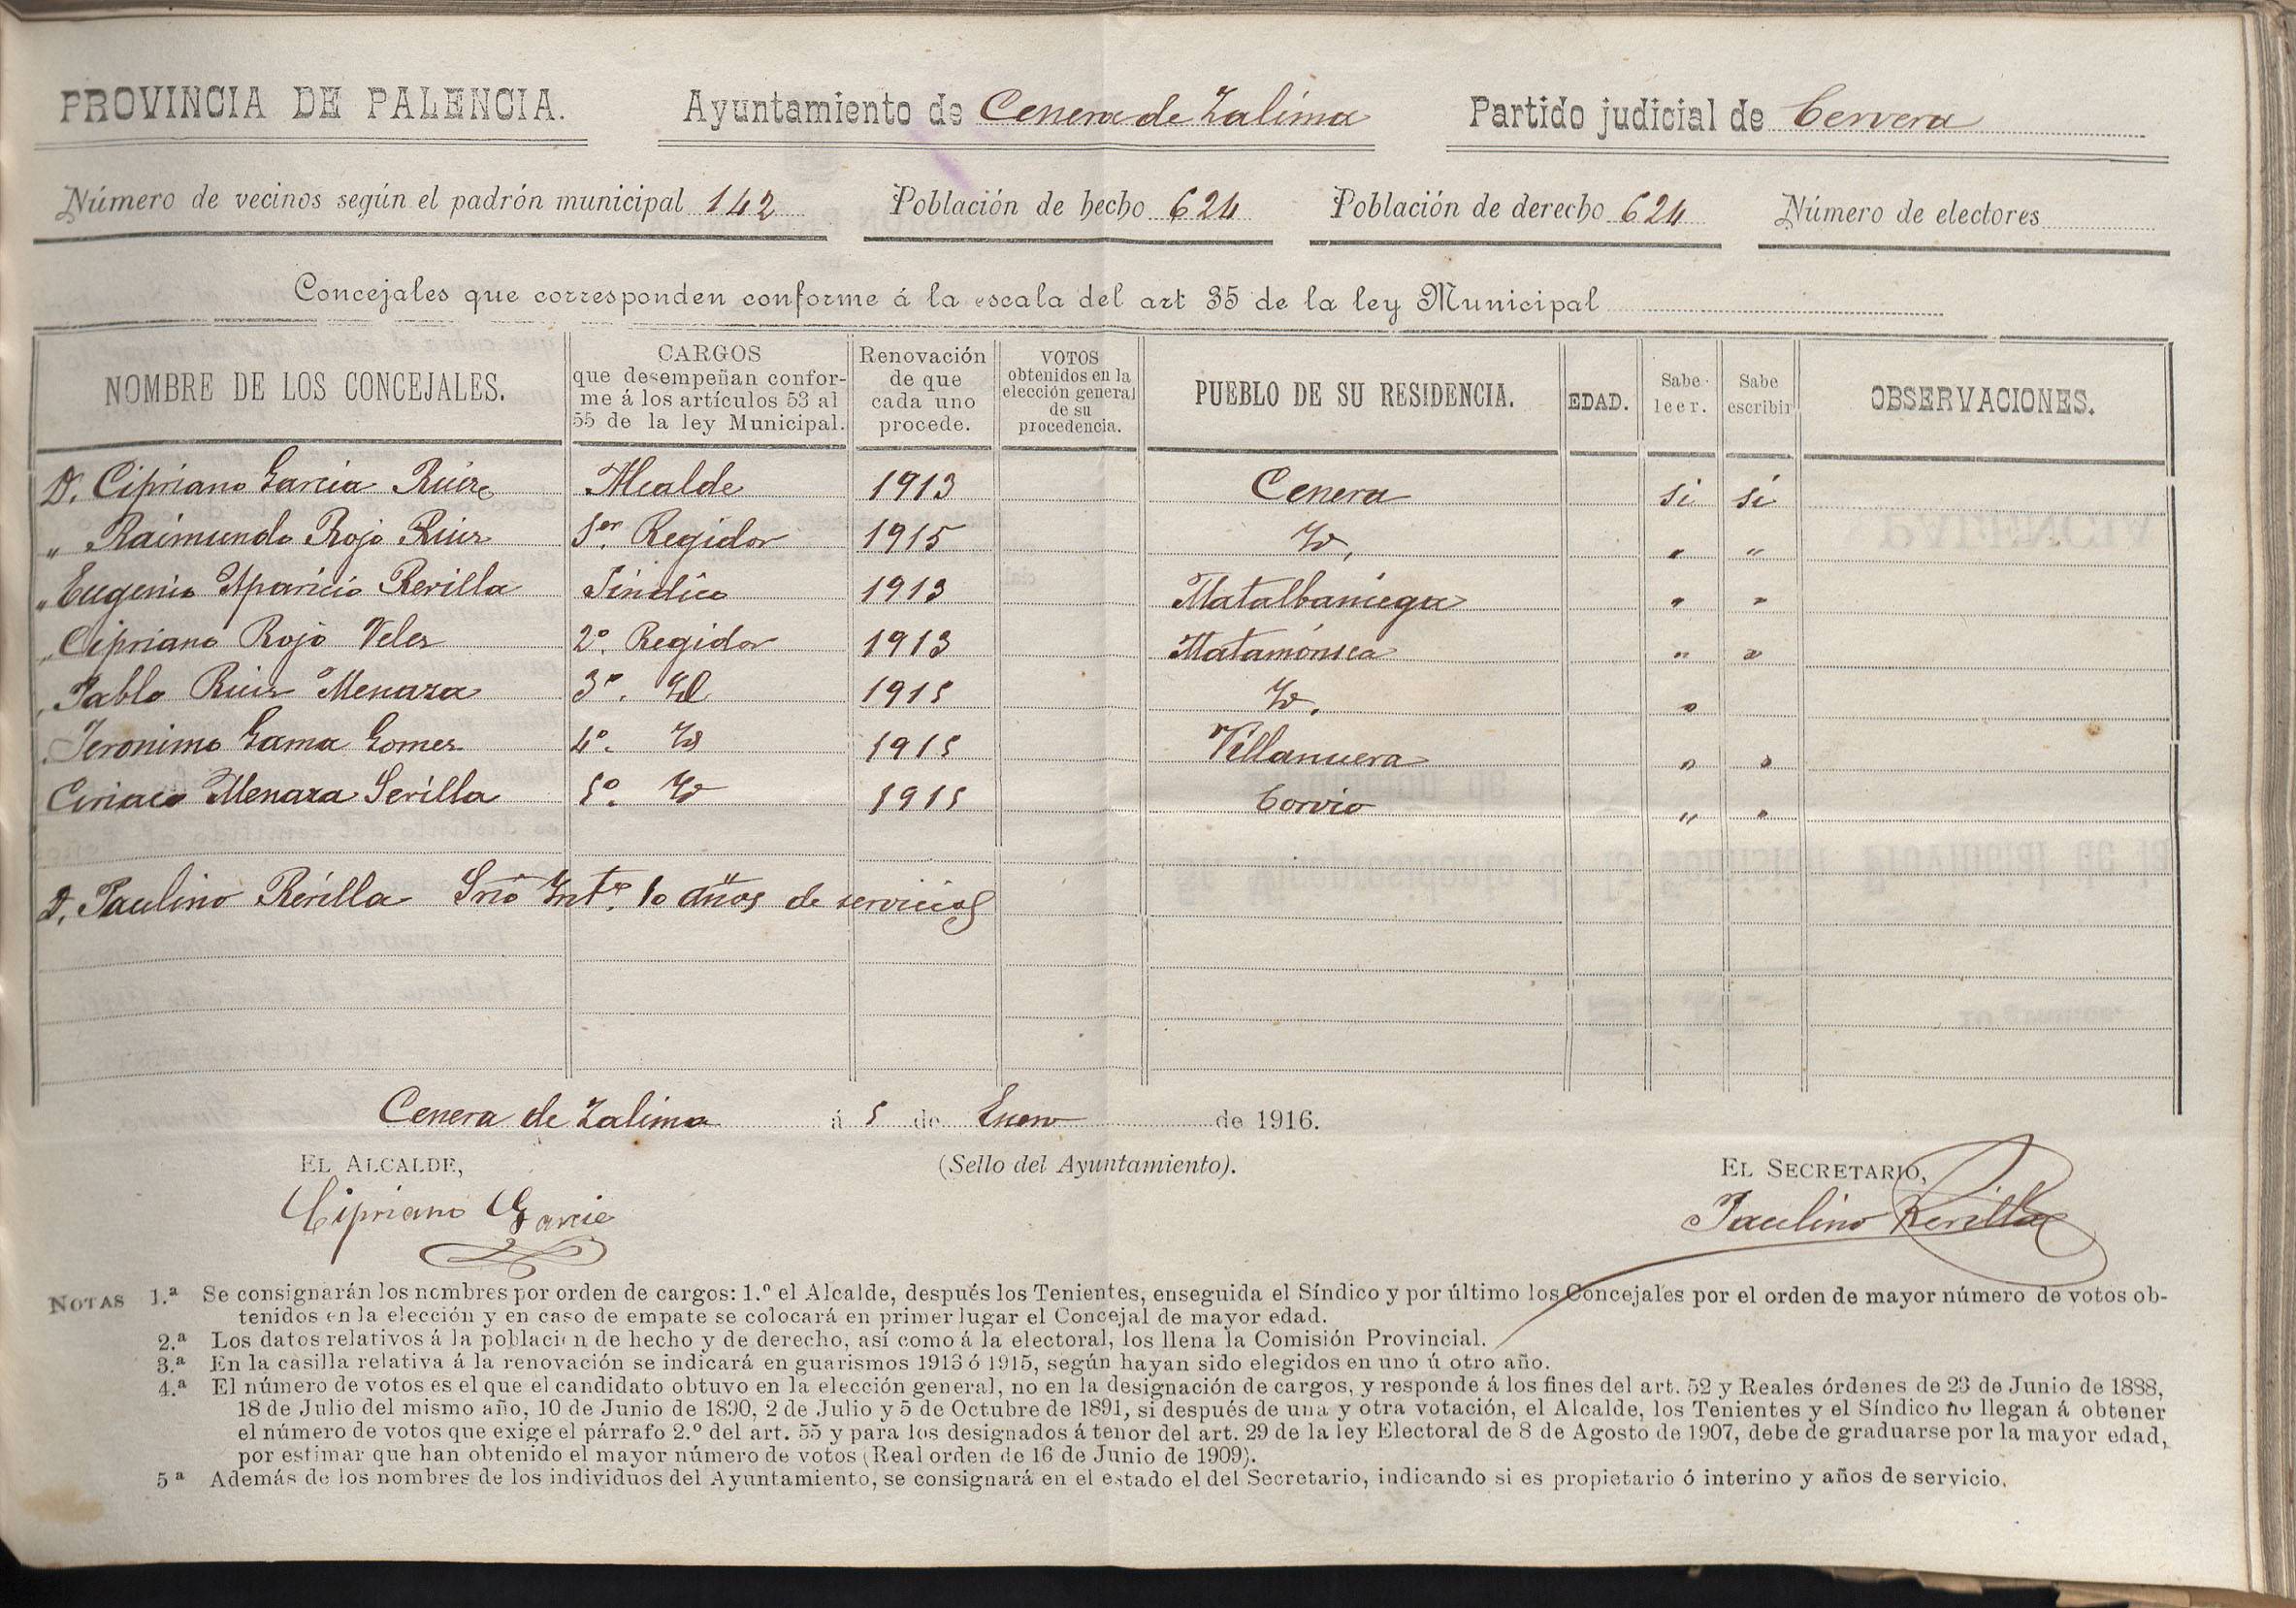 PROVINCIA DE PALENCIA. Ayuntamiento de Cenera de Zalima Partido judicial de Cervera
Número de vecinos según el padrón municipal 142 Población de hecho 624 Población de derecho 624 Número de electores
Concejales que corresponden conforme á la escala del art 35 de la ley Municipal
NOMBRE DE LOS CONCEJALES.
CARGOS
que desempeñan confor-
me á los artículos 53 al
55 de la ley Municipal.
Renovación
de que
cada uno
procede.
VOTOS
obtenidos en la
elección general
de su
procedencia.
PUEBLO DE SU RESIDENCIA.
EDAD.
Sabe
leer.
Sabe
escribir
OBSERVACIONES.
D. Cipriano Garcia Ruiz Alcalde 1913 Cenera si si
" Raimundo Rojo Ruiz 1er. Regidor 1915 Id. " "
" Eugenio Aparicio Revilla Sindico 1913 Matalbaniega " "
" Cipriano Rojo Velez 2º. Regidor 1913 Matamorisca " "
" Pablo Ruiz Menaza 3º. Id 1915 Id. "
" Jeronimo Gama Gomez 4º. Id 1915 Villanueva " "
Ciriaco Menaza Sevilla 5º. Id 1915 Corvio " "
D. Paulino Revilla Srio Intº. 10 años de servicios
Cenera de Zalima á 5 de Enero de 1916.
EL ALCALDE, (Sello del Ayuntamiento). EL SECRETARIO,
Cipriano Garcia Paulino Revilla
NOTAS 1.ª Se consignarán los nombres por orden de cargos: 1.º el Alcalde, después los Tenientes, enseguida el Síndico y por último los Concejales por el orden de mayor número de votos ob-
tenidos en la elección y en caso de empate se colocará en primer lugar el Concejal de mayor edad.
2.ª Los datos relativos á la población de hecho y de derecho, así como á la electoral, los llena la Comisión Provincial.
3.ª En la casilla relativa á la renovación se indicará en guarismos 1913 ó 1915, según hayan sido elegidos en uno ú otro año.
4.ª El número de votos es el que el candidato obtuvo en la elección general, no en la designación de cargos, y responde á los fines del art. 52 y Reales órdenes de 23 de Junio de 1888,
18 de Julio del mismo año, 10 de Junio de 1890, 2 de Julio y 5 de Octubre de 1891, si después de una y otra votación, el Alcalde, los Tenientes y el Síndico no llegan á obtener
el número de votos que exige el párrafo 2.º del art. 55 y para los designados á tenor del art. 29 de la ley Electoral de 8 de Agosto de 1907, debe de graduarse por la mayor edad,
por estimar que han obtenido el mayor número de votos (Real orden de 16 de Junio de 1909).
5ª Además de los nombres de los individuos del Ayuntamiento, se consignará en el estado el del Secretario, indicando si es propietario ó interino y años de servicio.